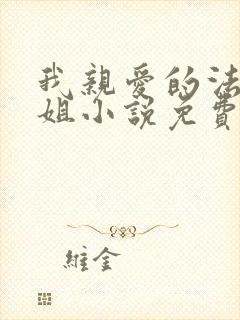 我親愛的法
姐小說免費
維金